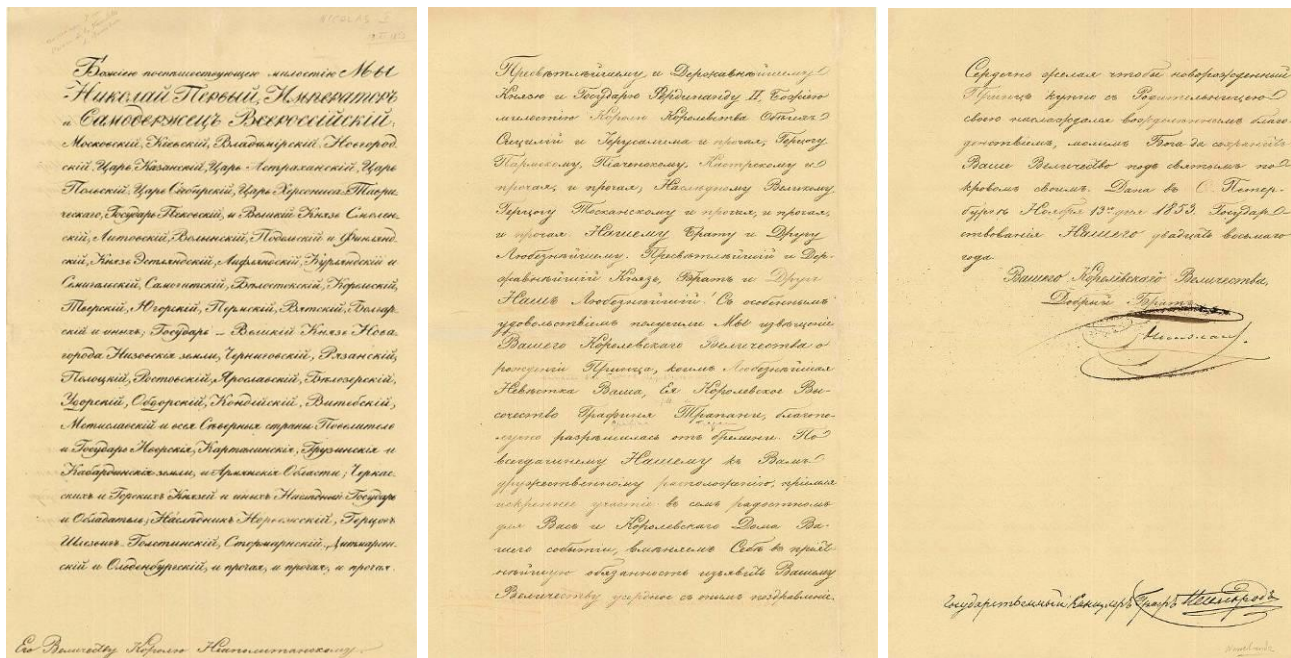 NICOLAS I
Божіею поспѣшествующею милостію МЫ
Николай Первый, Императоръ
и Самодержецъ Всероссійскій,
Московскій, Кіевскій, Владимірскій, Новгород-
скій, Царь Казанскій, Царь Астраханскій, Царь
Польскій, Царь Сибирскій, Царь Херсониса-Таври-
ческаго, Государь Псковскій, и Великій Князь Смолен-
скій, Литовскій, Волынскій, Подольскій и Финлянд-
скій, Князь Эстляндскій, Лифляндскій, Курляндскій и
Семигальскій, Самогитскій, Бѣлостокскій, Корельскій,
Тверскій, Югорскій, Пермскій, Вятскій, Болгар-
скій и иныхъ; Государь и Великій Князь Нова-
города Низовскія земли, Черниговскій, Рязанскій,
Полоцкій, Ростовскій, Ярославскій, Бѣлозерскій,
Удорскій, Обдорскій, Кондійскій, Витебскій,
Мстиславскій и всея Сѣверныя страны Повелитель
и Государь Иверскія, Карталинскія, Грузинскія и
Кабардинскія земли, и Армянскія Области; Черкас-
скихъ и Горскихъ Князей и иныхъ Наслѣдный Государь
и Обладатель; Наслѣдникъ Норвежскій, Герцогъ
Шлезвигъ-Голстинскій, Стормарнскій, Дитмарсен-
скій и Ольденбургскій, и прочая, и прочая, и прочая.
Его Величеству Королю Неаполитанскому.
Пресвѣтлѣйшему и Державнѣйшему
Князю и Государю Фердинанду II, Божіею
милостію Королю Королевства Обѣихъ
Сицилій и Іерусалима и прочая, Герцогу
Пармскому, Піаченскому, Кастрскому и
прочая, и прочая, Наслѣдному Великому
Герцогу Тосканскому и прочая, и прочая,
и прочая. Нашему Брату и Другу
Любезнѣйшему. Пресвѣтлѣйшій и Дер-
жавнѣйшій Князь, Братъ и Другъ
Нашъ Любезнѣйшій! Съ особеннымъ
удовольствіемъ получили Мы извѣщеніе
Вашего Королевскаго Величества о
рожденіи Принца, коимъ Любезнѣйшая
Невѣстка Ваша, Ея Королевское Вы-
сочество Графиня Трапани, благопо-
лучно разрѣшилась отъ бремени. По
всегдашнему Нашему къ Вамъ
дружественному расположенію, пріемля
искреннее участіе въ семъ радостномъ
для Васъ и Королевскаго Дома Ва-
шего событіи, вмѣняемъ Себѣ въ пріят-
нѣйшую обязанность изъявить Вашему
Величеству усердное съ тѣмъ поздравленіе.
Сердечно желая чтобы новорожденный
Принцъ купно съ Родительницею
своею наслаждался вожделеннымъ благо-
денствіемъ, молимъ Бога да сохранитъ
Ваше Величество подъ святымъ по-
кровомъ своимъ. Дана въ С. Петер-
бургѣ Ноября 13го дня 1853. Государ-
ствованія Нашего двадцать восьмаго
года
Вашего Королевскаго Величества,
Добрый Братъ
Николай.
Государственный Канцлеръ Графъ Нессельродъ